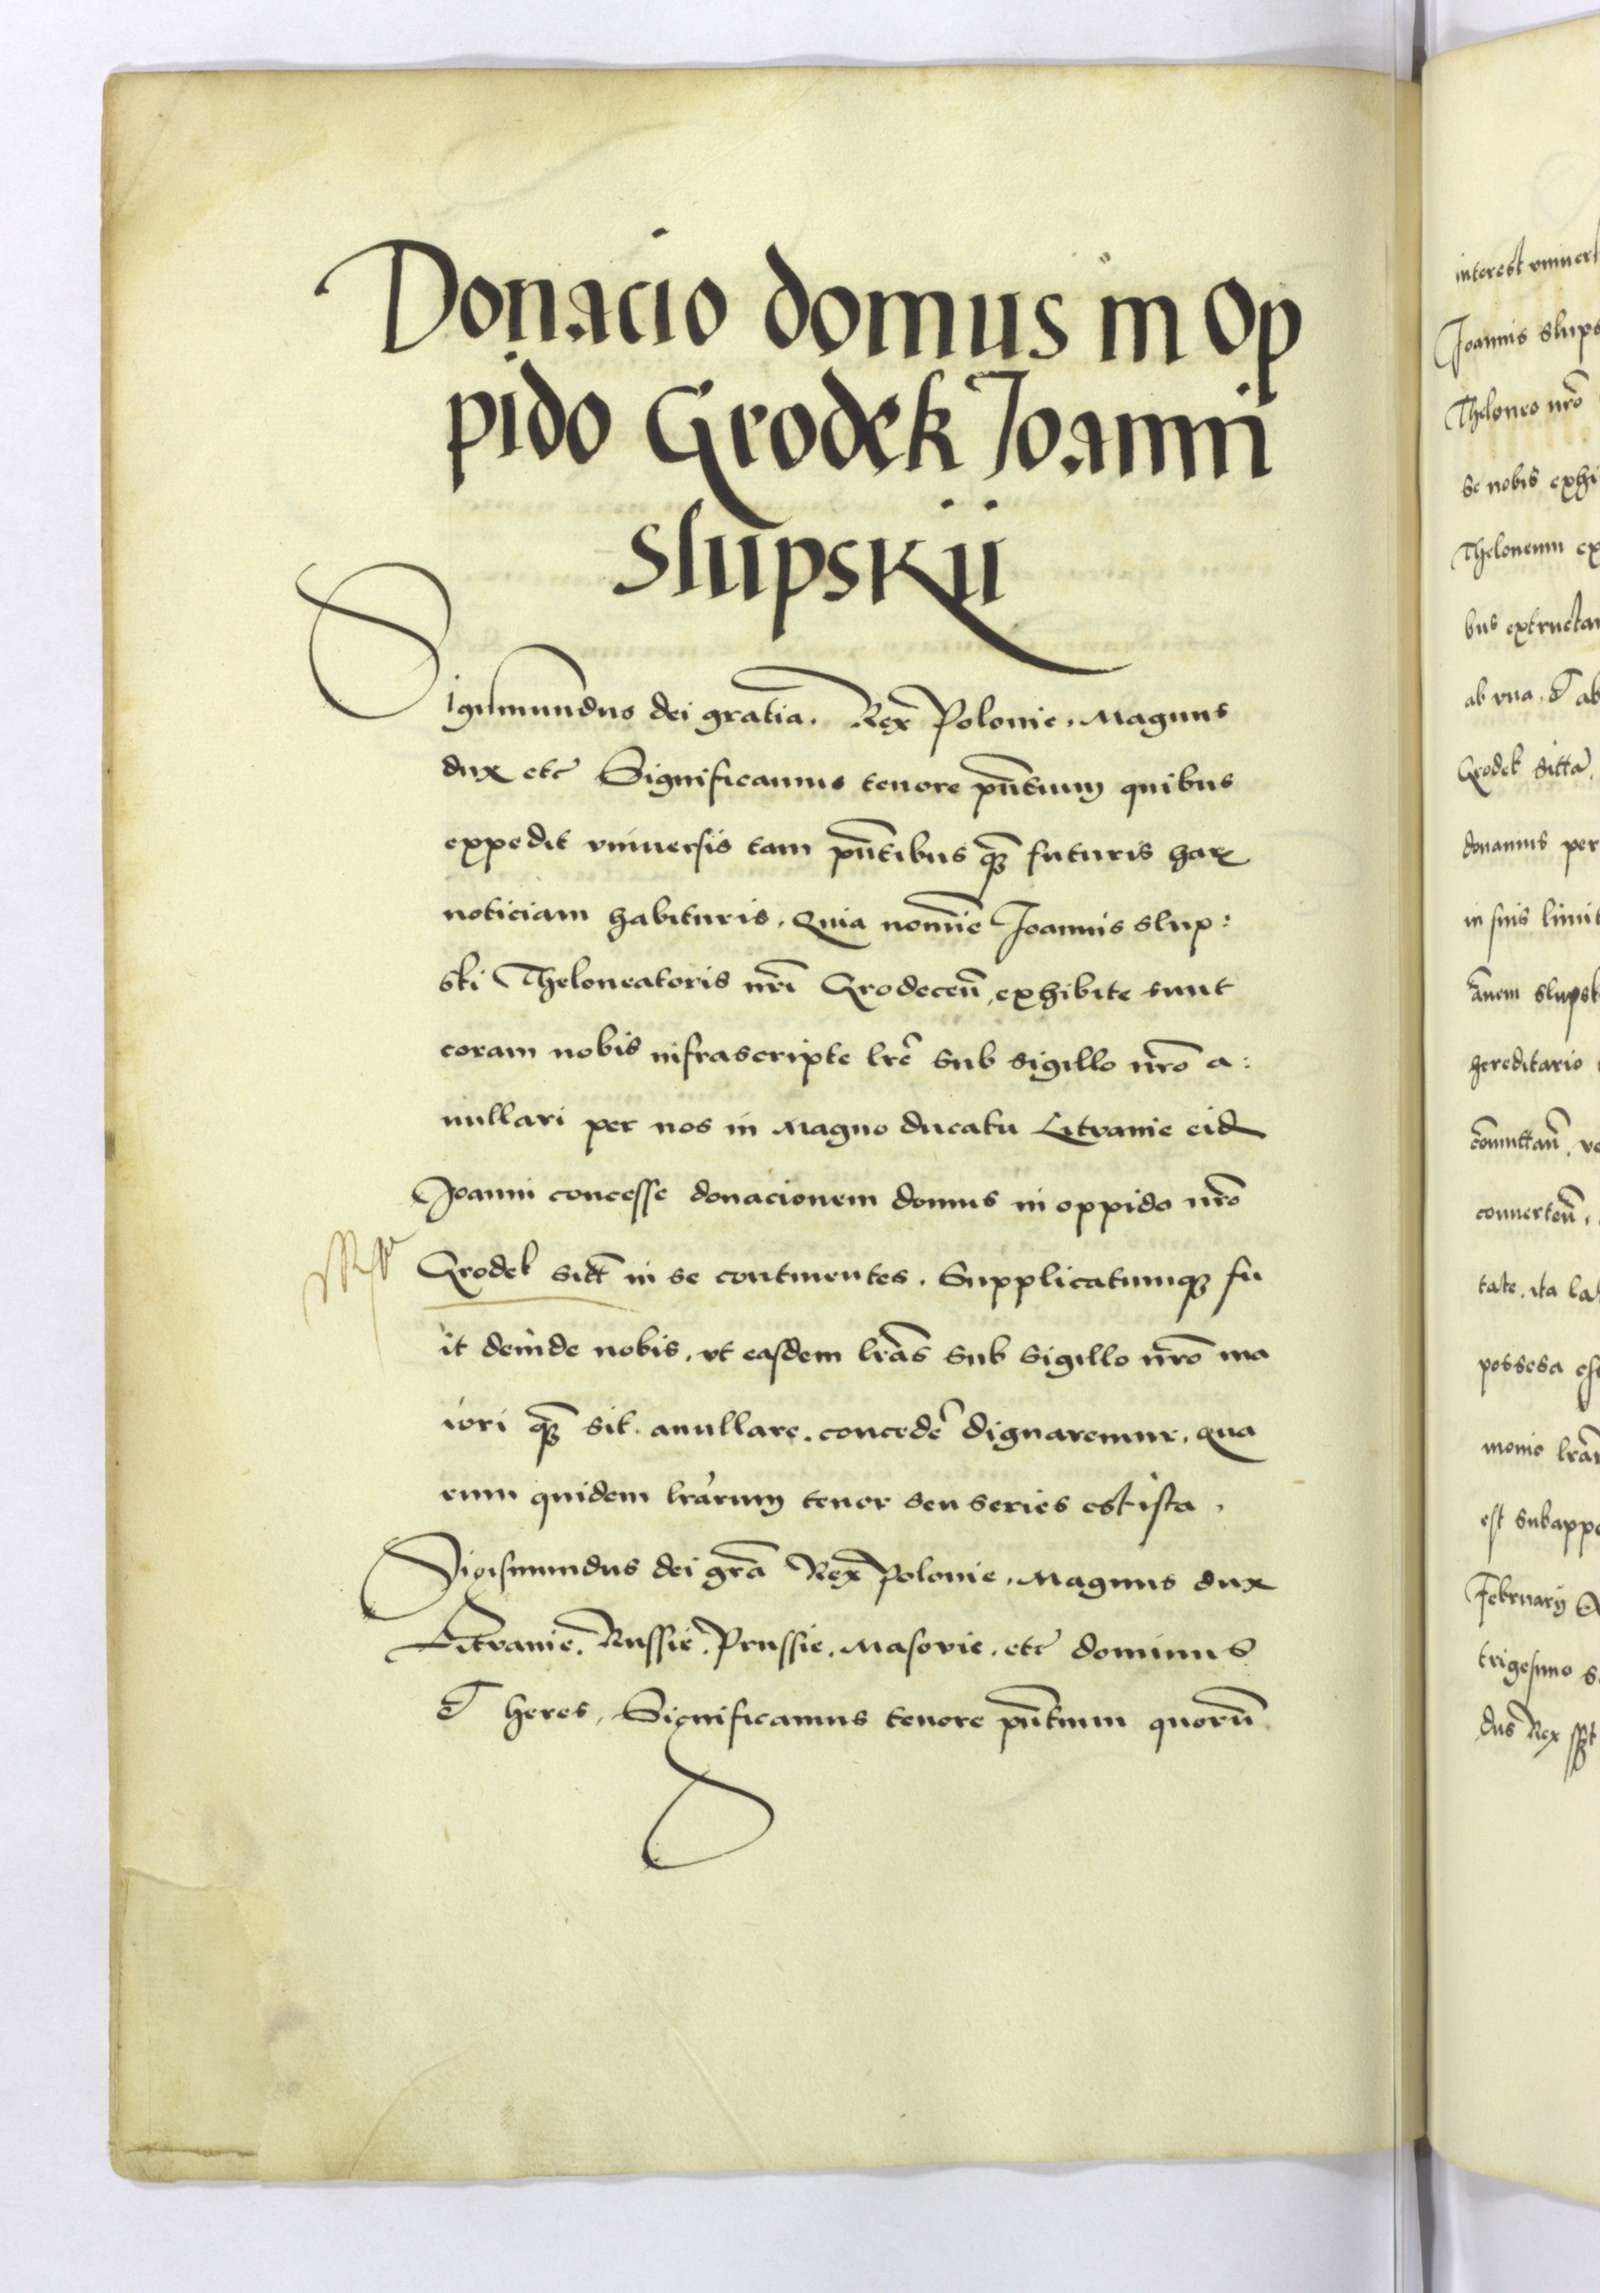 Donacio domus in Op
pido Grodek Joanni
Slupskij
Sigismundus dei gratia. Rex Polonie. Magnus
dux etc Significamus tenore pn̄tium quibus
expedit vniuersis tam pn̄tibus q̄ futuris harꝝ
noticiam habituris. Quia nom̄ie Joannis Slup:
ski Theloneatoris nr̄i Grodeceñ, exhibite sunt
coram nobis infrascripte lrē sub sigillo nr̄o a:
nullari per nos in Magno ducatu Litvanie eid
Joanni concesse donacionem domus in oppido nr̄o
Grodek sitt̄ in se continentes. Supplicatumqꝫ fu
it deinde nobis. vt easdem lrās sub sigillo nr̄o ma
iori q̄ sit. anullare. concedē dignaremur. Qua
rum quidem lrārum tenor seu series est ista.
Sigismundus dei grā Rex Polonie. Magnus dux
Litvanie. Russie. Prussie. Masovie. etc dominus
et heres. Significamus tenore pn̄tium quorū
interest vniuer
Joannis Slups
Theloneo nr̄o
se nobis exhi
Theloneum ex
bus extructa
ab vna. et ab
Grodek
donamus per
in suis limit
Slupsk
hereditario
conuerteñ.
tate. ita
possesa
monio lrār
est subapp
February
trigesimo
dus Rex